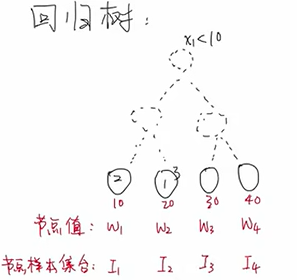 回归树:
x₁<10
2 1 3
10 20 30 40
节点值: W₁ W₂ W₃ W₄
节点样本集合: I₁ I₂ I₃ I₄